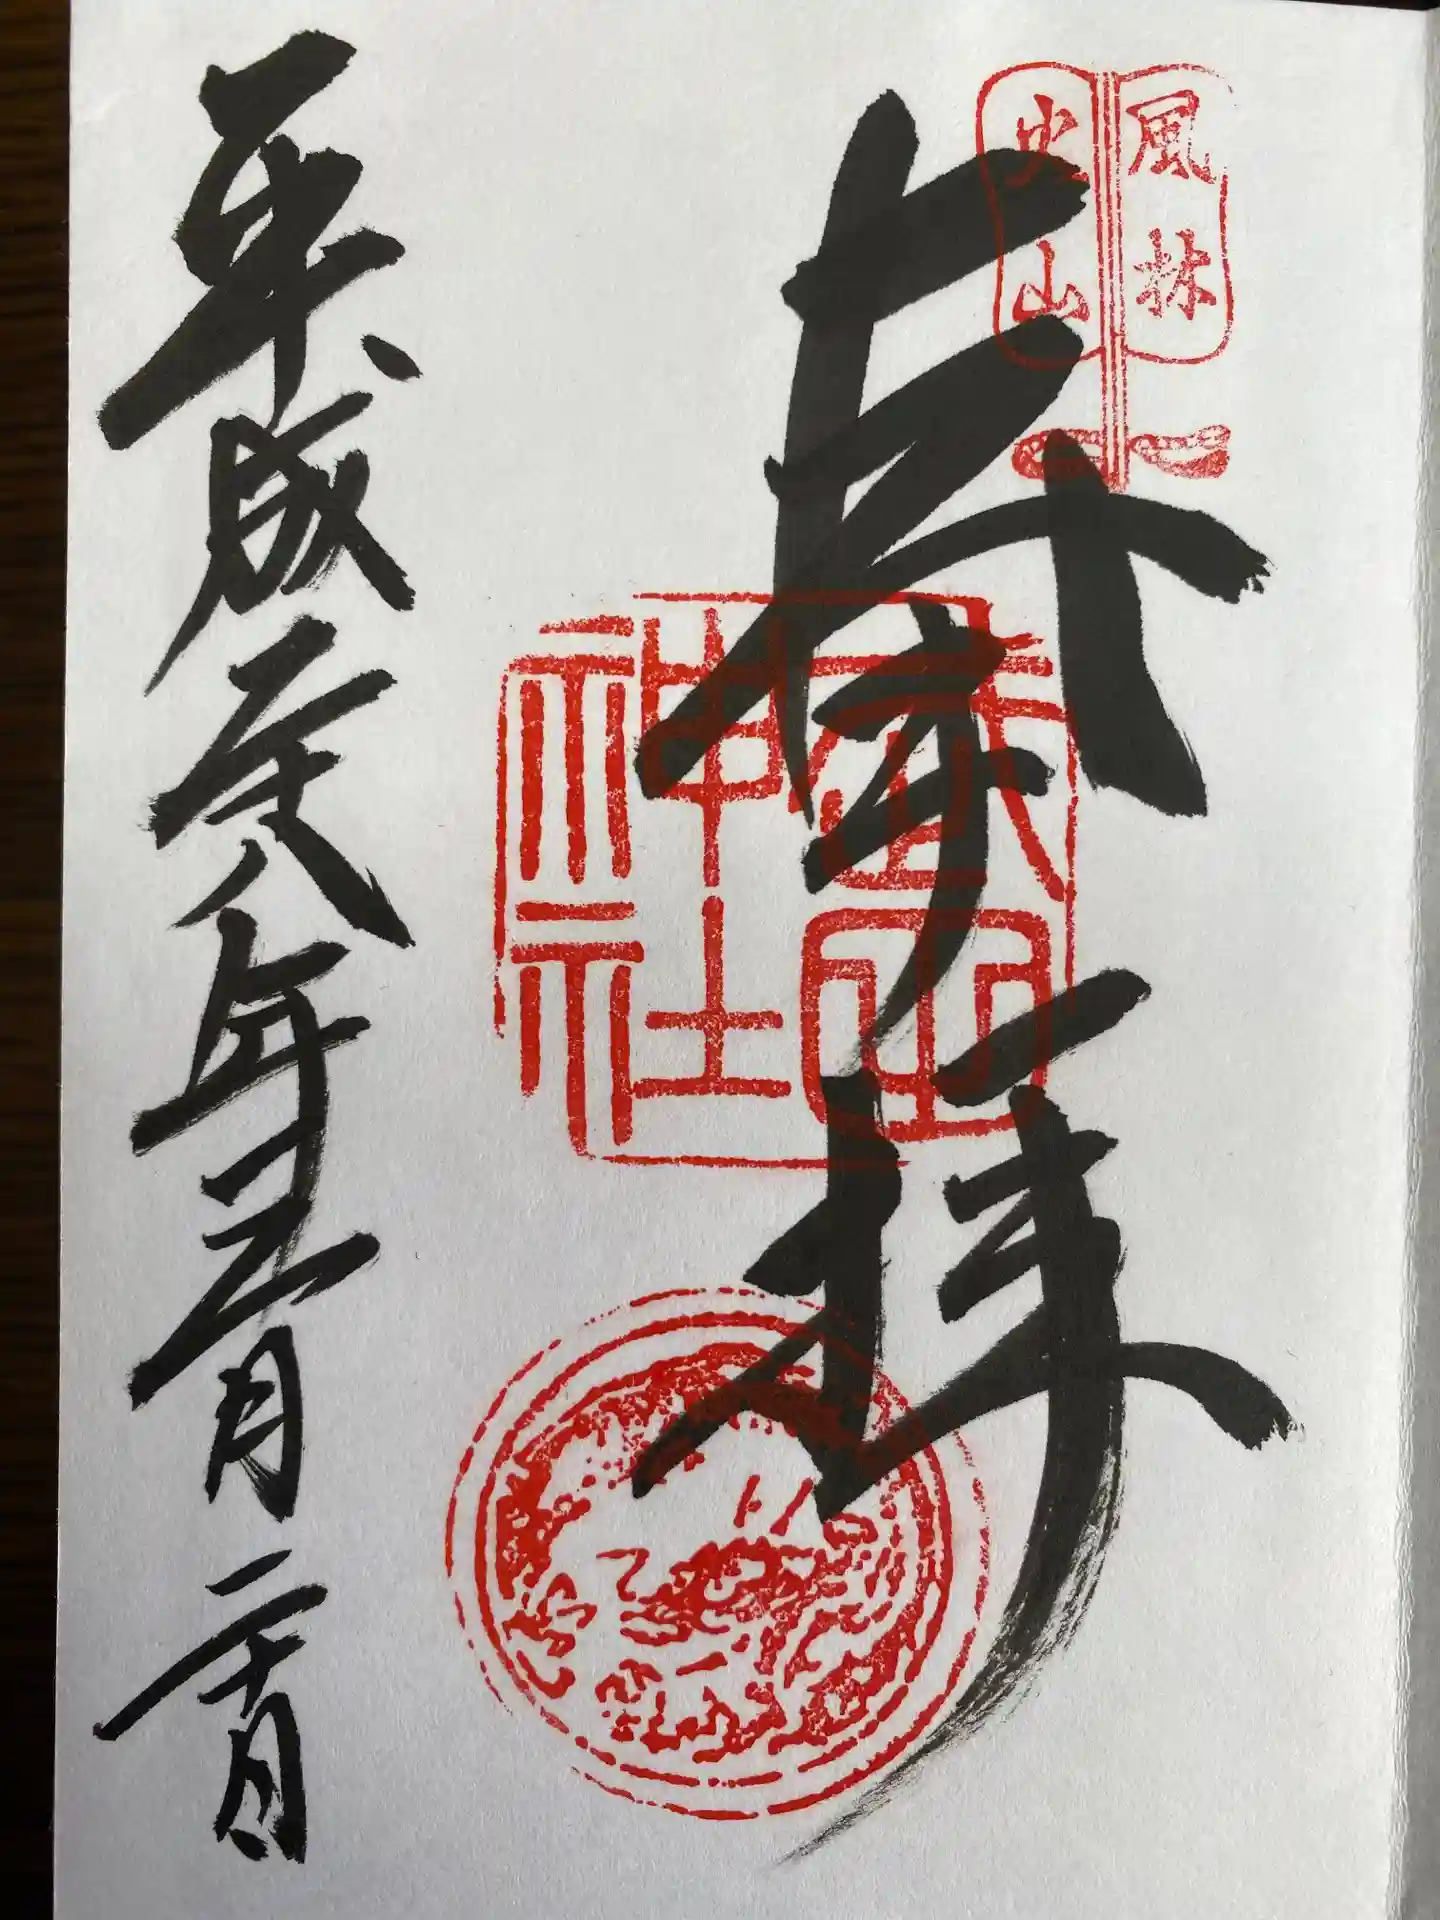 風林
火山
奉拝
武田
神社
平成二十八年五月二十日